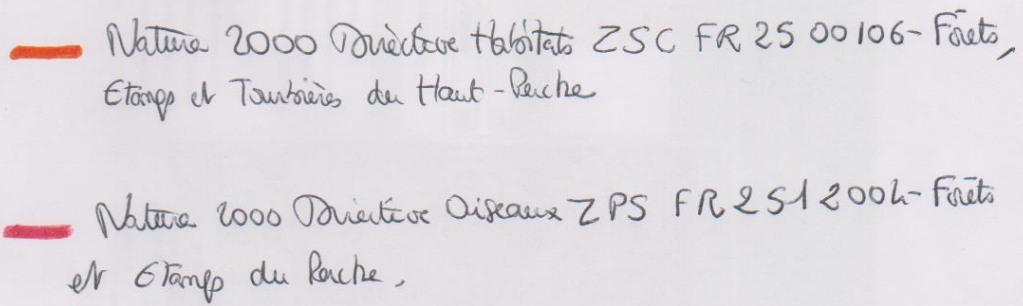 Natura 2000 Directive Habitats ZSC FR 25 00106 - Forêts,
Etangs et Tourbières du Haut-Perche
Natura 2000 Directive Oiseaux ZPS FR 2512004 - Forêts
et Etangs du Perche.